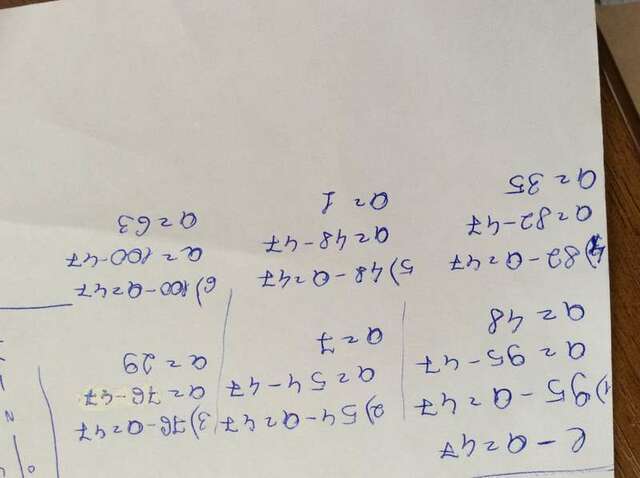 в - а = 47
1) 95 - а = 47
а = 95 - 47
а = 48
2) 54 - а = 47
а = 54 - 47
а = 7
3) 76 - а = 47
а = 76 - 47
а = 29
4) 82 - а = 47
а = 82 - 47
а = 35
5) 48 - а = 47
а = 48 - 47
а = 1
6) 100 - а = 47
а = 100 - 47
а = 63